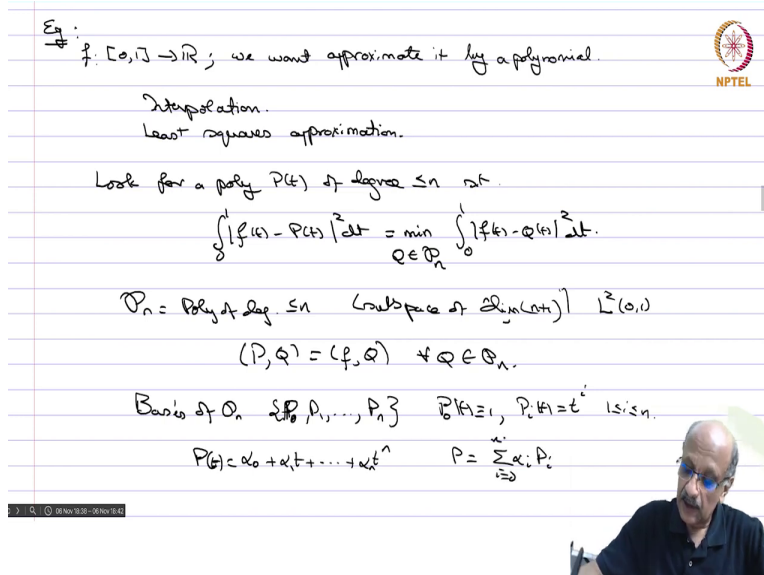 Eg:
f: [0,1] → ℝ ; we want approximate it by a polynomial.
NPTEL
Interpolation.
Least squares approximation.
Look for a poly P(t) of degree ≤n st.
∫₀¹ |f(t) - P(t)|² dt = min_{Q ∈ 𝒫ₙ} ∫₀¹ |f(t) - Q(t)|² dt.
𝒫ₙ = Poly of deg. ≤n (subspace of dim (n+1)] L²(0,1)
(P, Q) = (f, Q) ∀ Q ∈ 𝒫ₙ.
Basis of 𝒫ₙ {P₀, P₁, ..., Pₙ} P₀(t) ≡ 1, Pᵢ(t) = tⁱ 1≤i≤n.
P(t) = α₀ + α₁t + ··· + αₙtⁿ P = Σ_{i=0}^{n} αᵢ Pᵢ
06 Nov 18:38 – 06 Nov 18:42